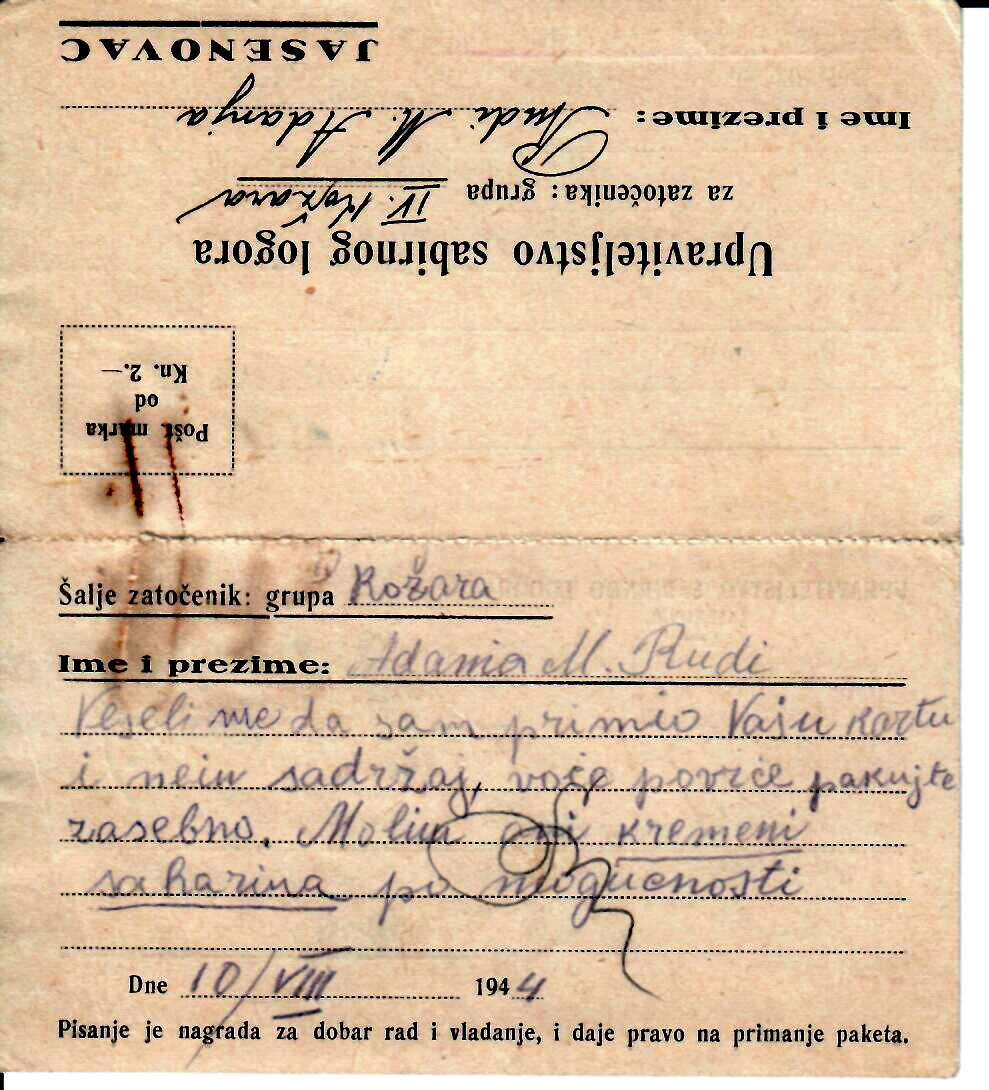 Upraviteljstvo sabirnog logora
za zatočenika: grupa IV. Kožara
Ime i prezime: Rudi M. Adanja
JASENOVAC
Pošt. marka
od
Kn. 2.—
Šalje zatočenik: grupa Kožara
Ime i prezime: Adania M. Rudi
Veseli me da sam primio Vašu kartu
i nein sadržaj, voće povrće pakujte
zasebno. Molim kremeni
saharina po mogućnosti
Dne 10/VIII 1944
Pisanje je nagrada za dobar rad i vladanje, i daje pravo na primanje paketa.